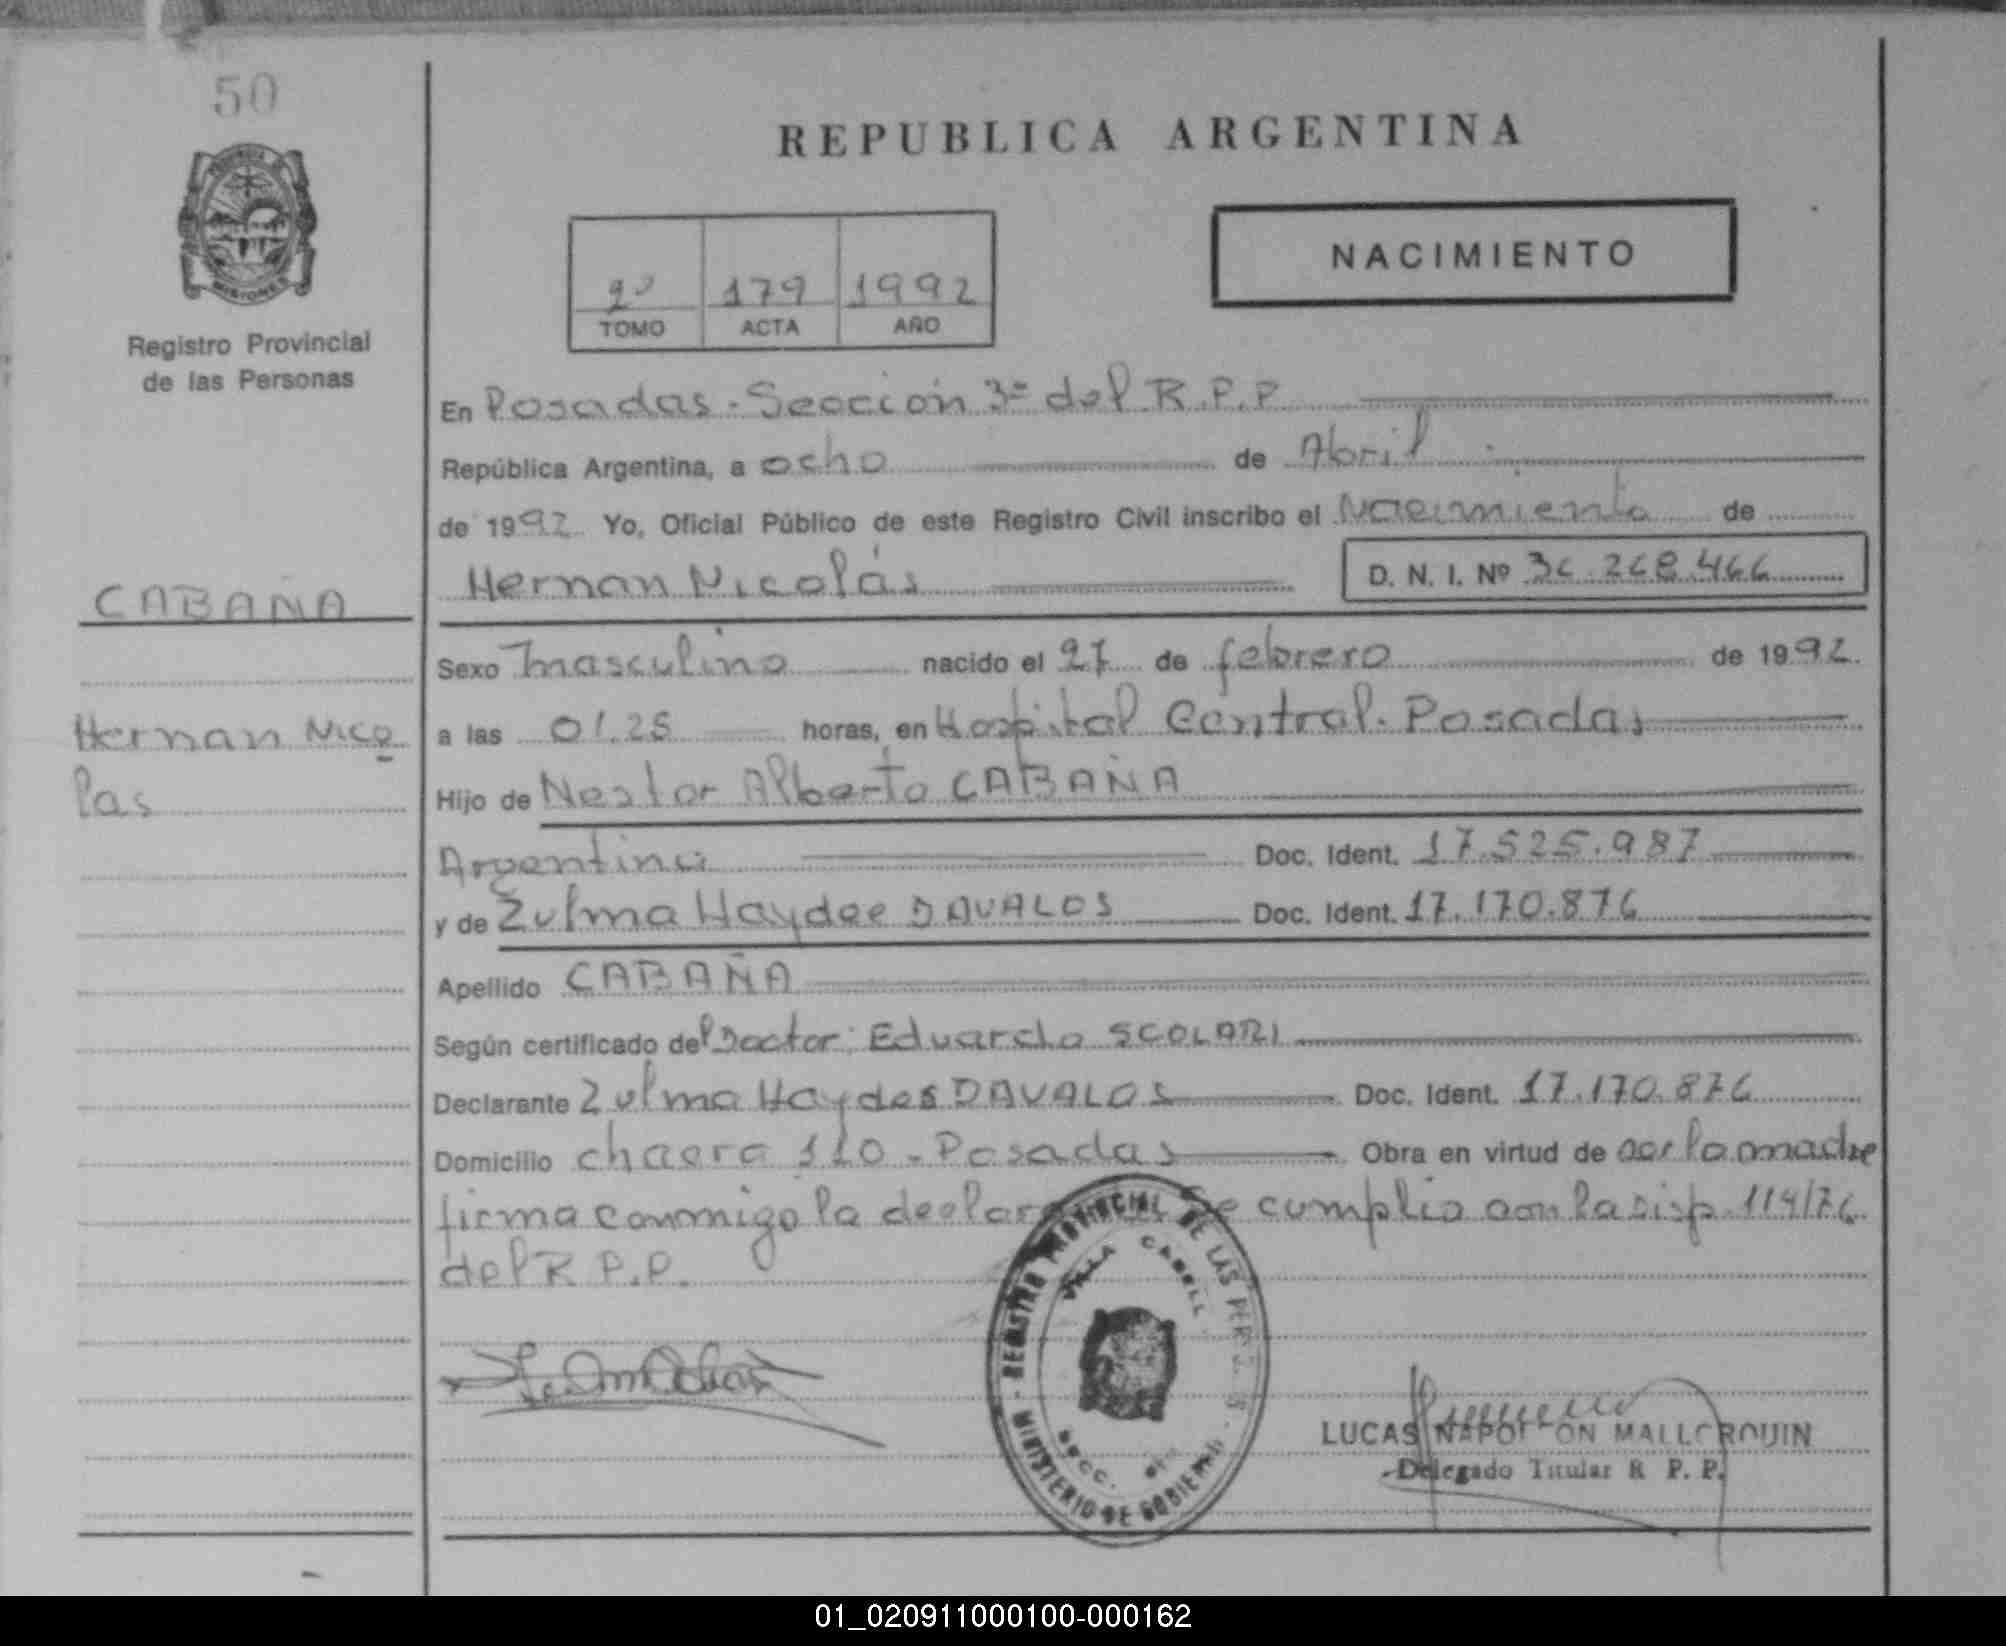 50
REPUBLICA ARGENTINA
MISIONES
Registro Provincial
de las Personas
NACIMIENTO
2º 179 1992
TOMO ACTA AÑO
En Posadas - Sección 3ª del R.P.P
República Argentina, a ocho de Abril
de 1992 Yo, Oficial Público de este Registro Civil inscribo el Nacimiento de
CABAÑA
Hernan Nicolás D. N. I. Nº 36.268.466
Sexo Masculino nacido el 27 de febrero de 1992.
Hernan Nico
las
a las 01.25 horas, en Hospital Central. Posadas
Hijo de Nestor Alberto CABAÑA
Argentina Doc. Ident. 17.525.987
y de Zulma Haydee DAVALOS Doc. Ident. 17.170.876
Apellido CABAÑA
Según certificado del Doctor: Eduardo SCOLARI
Declarante Zulma Haydee DAVALOS Doc. Ident. 17.170.876
Domicilio chacra 110 - Posadas Obra en virtud de ser la madre
firma conmigo la Se cumplio con la Disp. 114/76
del R.P.P.
REGISTRO PROVINCIAL DE LAS
VILLA CABELL
SECC.
MINISTERIO DE GOBIERNO
LUCAS NAPOLEON MALLORQUIN
Delegado Titular R. P. P.
01_020911000100-000162